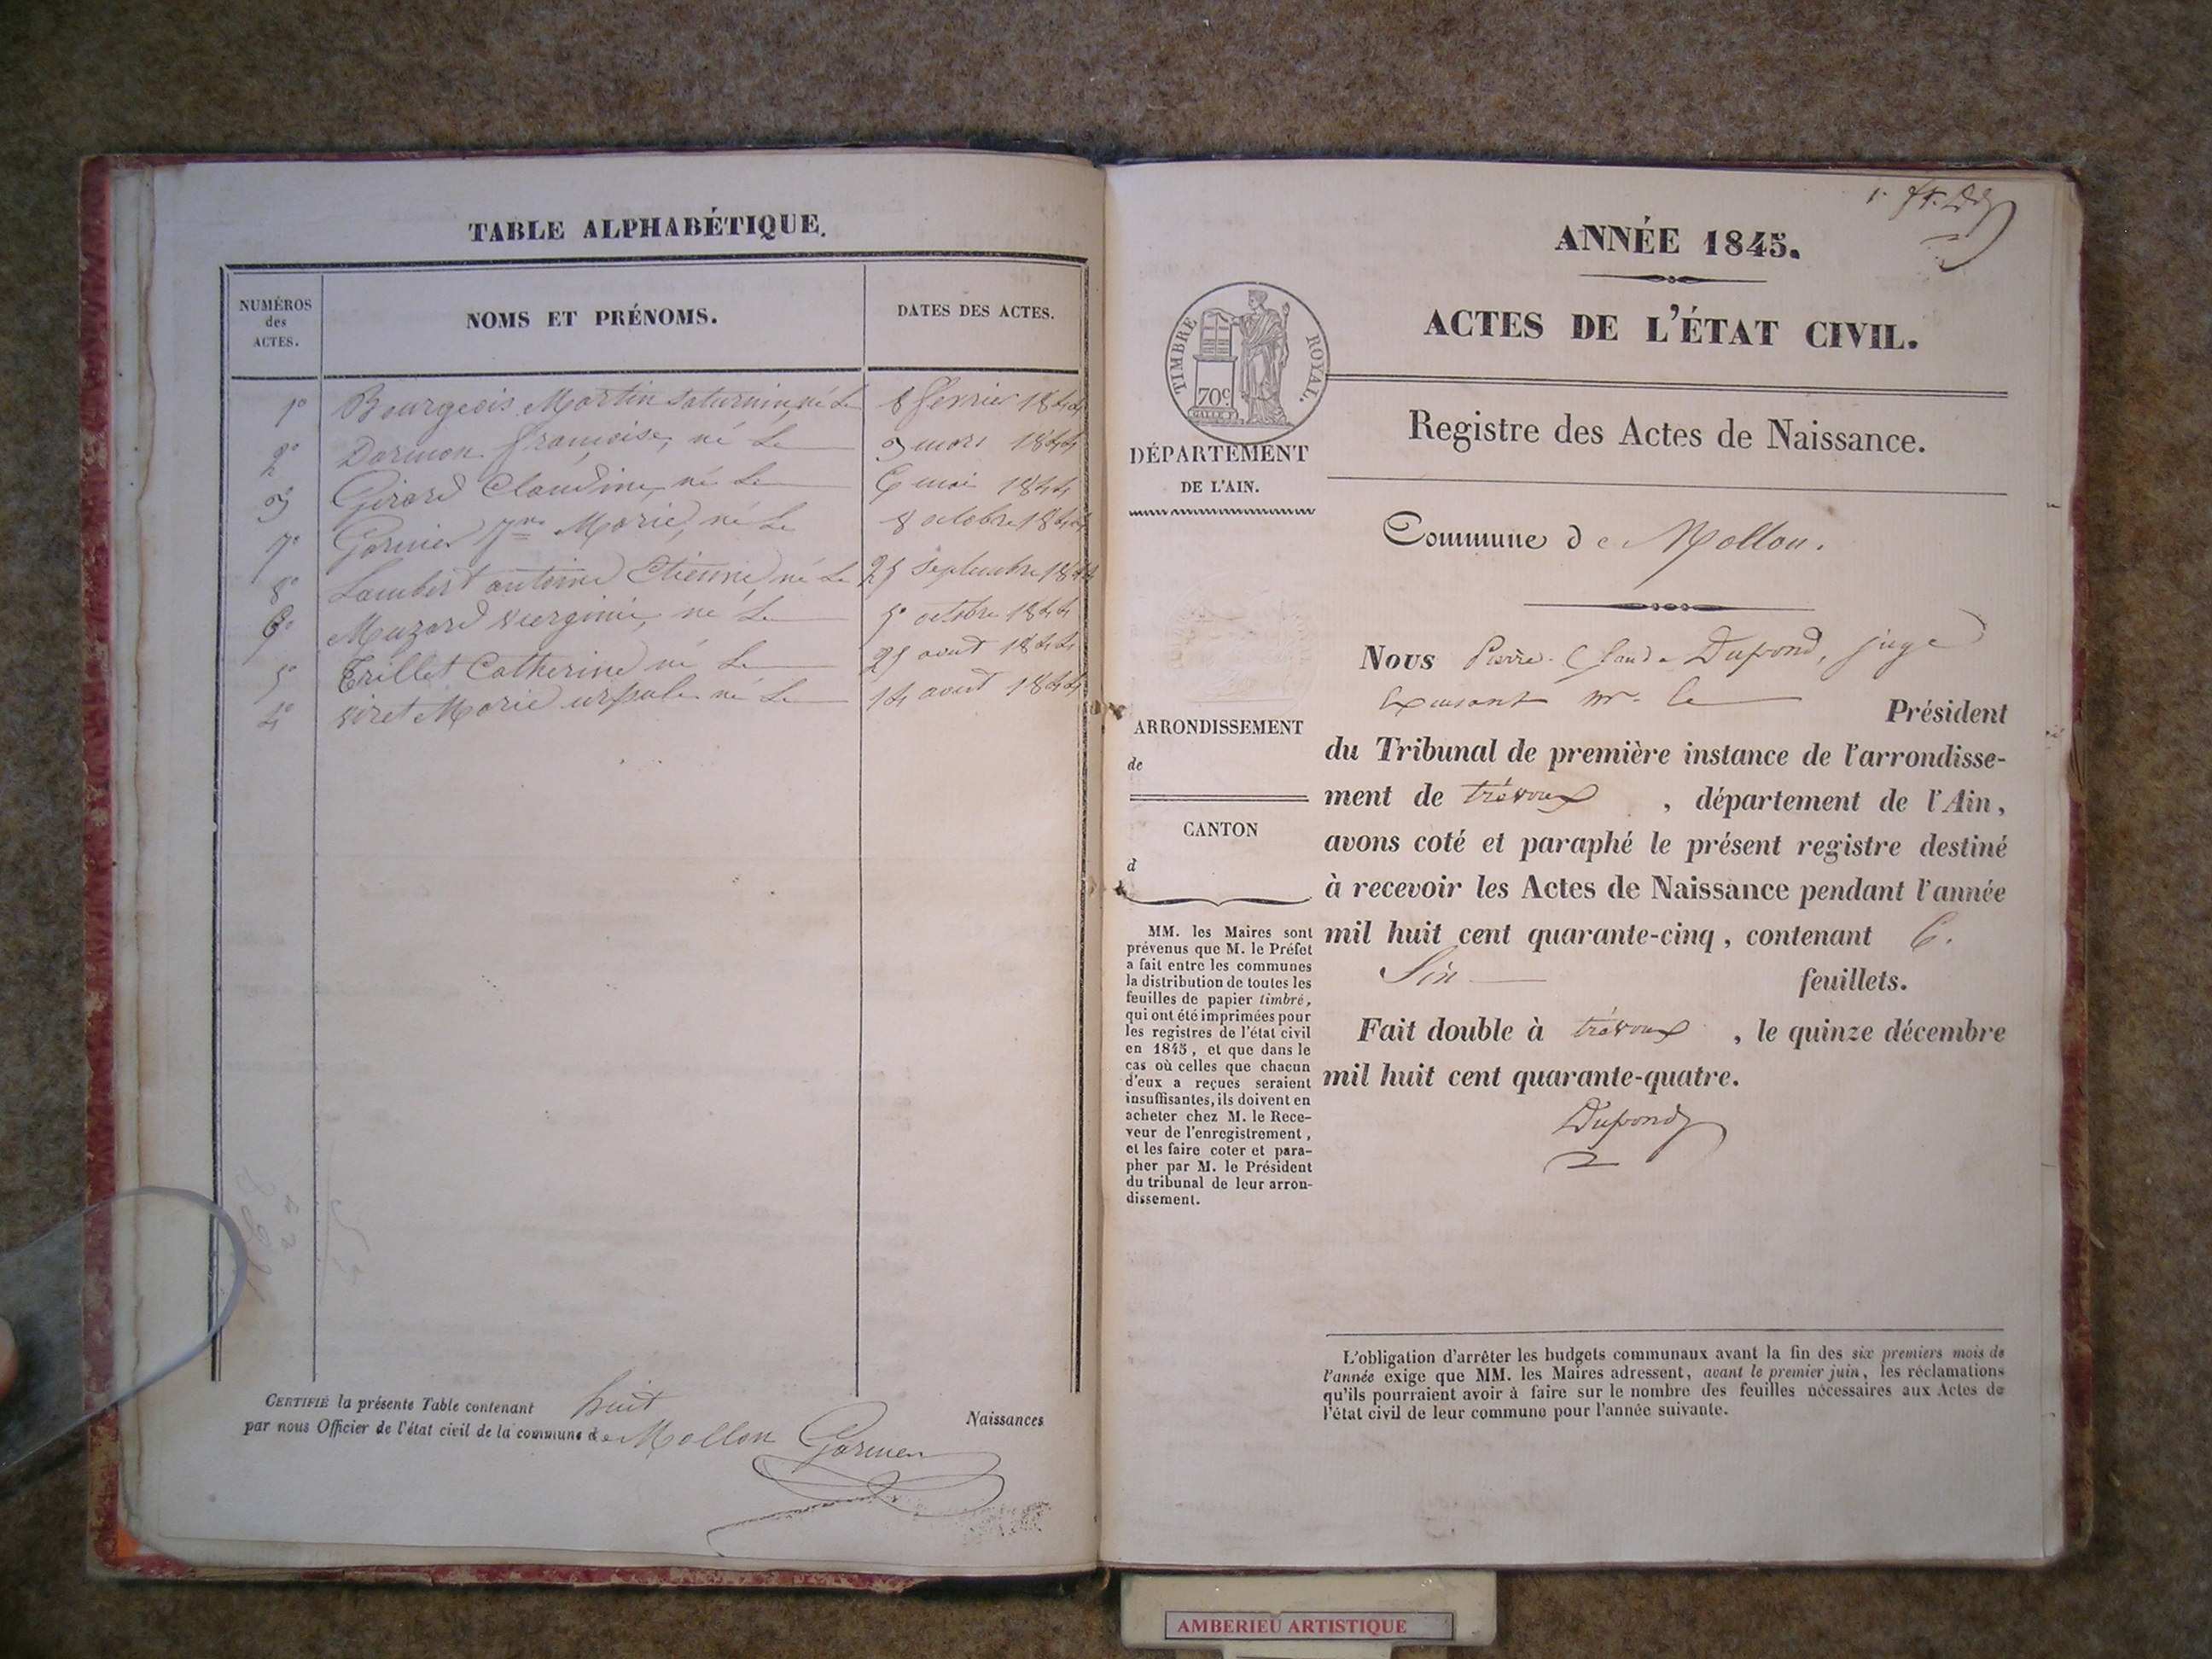 TABLE ALPHABÉTIQUE.
NUMÉROS des ACTES.
NOMS ET PRÉNOMS.
DATES DES ACTES.
1º Bourgeois Martin Saturnin, né Le 8 fevrier 1844
2º Dormon françoise, né Le 3 mars 1844
3 Girard Claudine, né Le 6 mai 1844
7º Garnier Marie, né Le 8 octobre 1844
8º Lambert antoine Etienne né Le 25 Septembre 1844
6º Muzard viergine, né Le 5º octobre 1844
5º Trillet Catherine né Le 25 aout 1844
4º viret Marie né Le 14 aout 1844
CERTIFIÉ la présente Table contenant huit Naissances
par nous Officier de l'état civil de la commune de Mollon Garnier
ANNÉE 1845.
ACTES DE L'ÉTAT CIVIL.
TIMBRE ROYAL.
70c
DÉPARTEMENT
DE L'AIN.
ARRONDISSEMENT
de
CANTON
d
MM. les Maires sont
prévenus que M. le Préfet
a fait entre les communes
la distribution de toutes les
feuilles de papier timbré,
qui ont été imprimées pour
les registres de l'état civil
en 1845, et que dans le
cas où celles que chacun
d'eux a reçues seraient
insuffisantes, ils doivent en
acheter chez M. le Rece-
veur de l'enregistrement,
et les faire coter et para-
pher par M. le Président
du tribunal de leur arron-
dissement.
Registre des Actes de Naissance.
Commune de Mollon.
Nous Pierre-Claude Dupond, juge
mr. le Président
du Tribunal de première instance de l'arrondisse-
ment de trévoux, département de l'Ain,
avons coté et paraphé le présent registre destiné
à recevoir les Actes de Naissance pendant l'année
mil huit cent quarante-cinq, contenant 6.
Six feuillets.
Fait double à trévoux, le quinze décembre
mil huit cent quarante-quatre.
Dupond
L'obligation d'arrêter les budgets communaux avant la fin des six premiers mois de
l'année exige que MM. les Maires adressent, avant le premier juin, les réclamations
qu'ils pourraient avoir à faire sur le nombre des feuilles nécessaires aux Actes de
l'état civil de leur commune pour l'année suivante.
AMBERIEU ARTISTIQUE